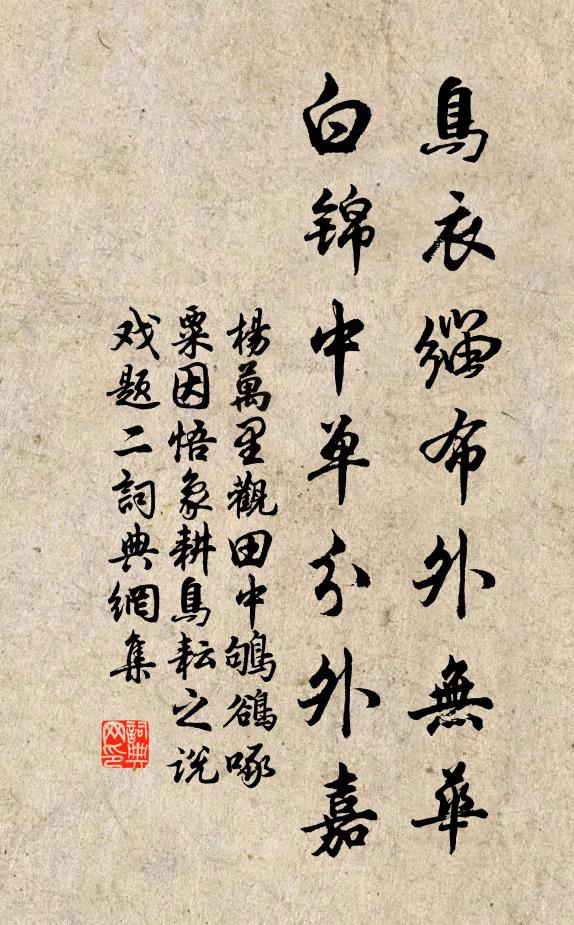 鳥衣緇布外無華
白錦中单分外嘉
楊萬里觀田中鴝鵒啄
粟因悟象耕鳥耘之説
戏題二詞典網集
詞典
网印